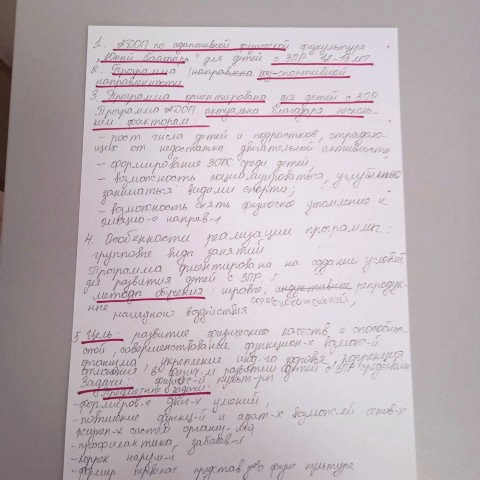 1. АДОП по адаптивной физической физкультуре
"Юный богатырь" для детей с ЗПР 12-15 лет
2. Программа (направлена) физ-спортивной
направленности
3. Программа ориентирована для детей с ЗПР
Программа АДОП актуальна благодаря несколь-
ким факторам:
- рост числа детей и подростков, страдаю-
щих от недостатка двигательной активности
- формирование ЗОЖ среди детей,
- возможность социализироваться, углубленно
заниматься видами спорта;
- возможность снять физическо утомление и
эмоцио-е направ-е
4. Особенности реализации программы:
групповые виды занятий
Программа ориентирована на создание условий
для развития детей с ЗПР.
методы обучения: игровые, репродук-
ные
наглядного воздействия
5 Цель: развитие физических качеств, и способно-
стей, совершенствование функцион-х возмож-й
организма, укрепление здоровья, коррекция
отклонения в развитии детей с ЗПР средствами
Задачи: физичес-й культ-ры
Предметные задачи:
- формиров-е двиг-х умений,
- развитие функц-й и адапт-х возмож-ей основ-х
жизнен-х систем организ-ма
- профилактика, заболев-я
- коррек. наруш-я
- формир первонач представ физич культуре